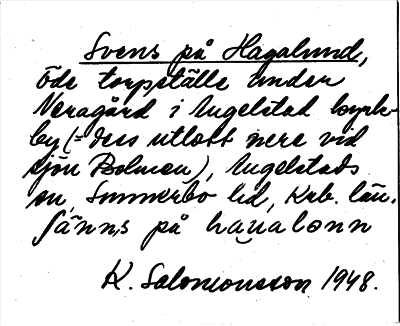 Svens på Hagalund,
öde torpställe under
Neragård i Angelstad kyrk-
by (= dess utlott nere vid
sjön Bolmen), Angelstads
sn, Sunnerbo hd, Krb. län.
sänns på haualonn
K. Salomonsson 1948.